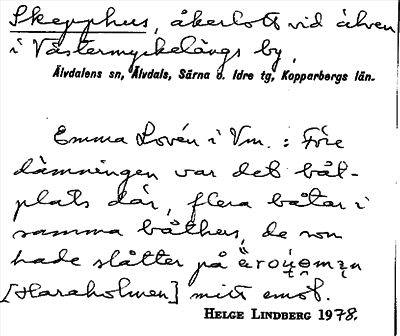 Skepphus, åkerlott vid älven
i Västermyckelängs by,
Älvdalens sn, Älvdals, Särna o. Idre tg, Kopparbergs län.
Emma Lovén i Vm.: Före
dämningen var det båt-
plats där, flera båtar i
samma båthus, de som
hade slåtter på
[Haraholmen] mitt emot.
HELGE LINDBERG 1978.